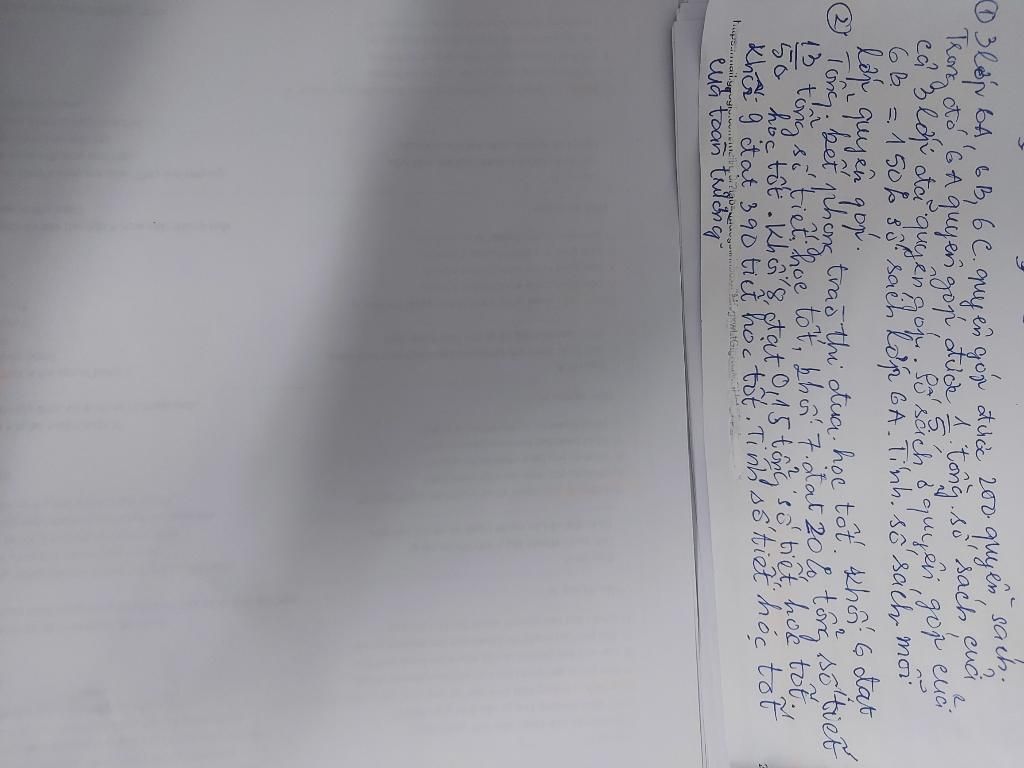 ① 3 lớp 6A, 6B, 6C quyên góp được 200 quyển sách.
Trong đó 6A quyên góp được 1/5 tổng số sách của
cả 3 lớp đã quyên góp. Số sách quyên góp của
6B = 150% số sách lớp 6A. Tính số sách mỗi
lớp quyên góp.
② Tổng kết phong trào thi đua học tốt. Khối 6 đạt
13/50 tổng số tiết học tốt, khối 7 đạt 20% tổng số tiết
học tốt. Khối 8 đạt 0,15 tổng số tiết học tốt.
Khối 9 đạt 390 tiết học tốt. Tính số tiết học tốt
của toàn trường.